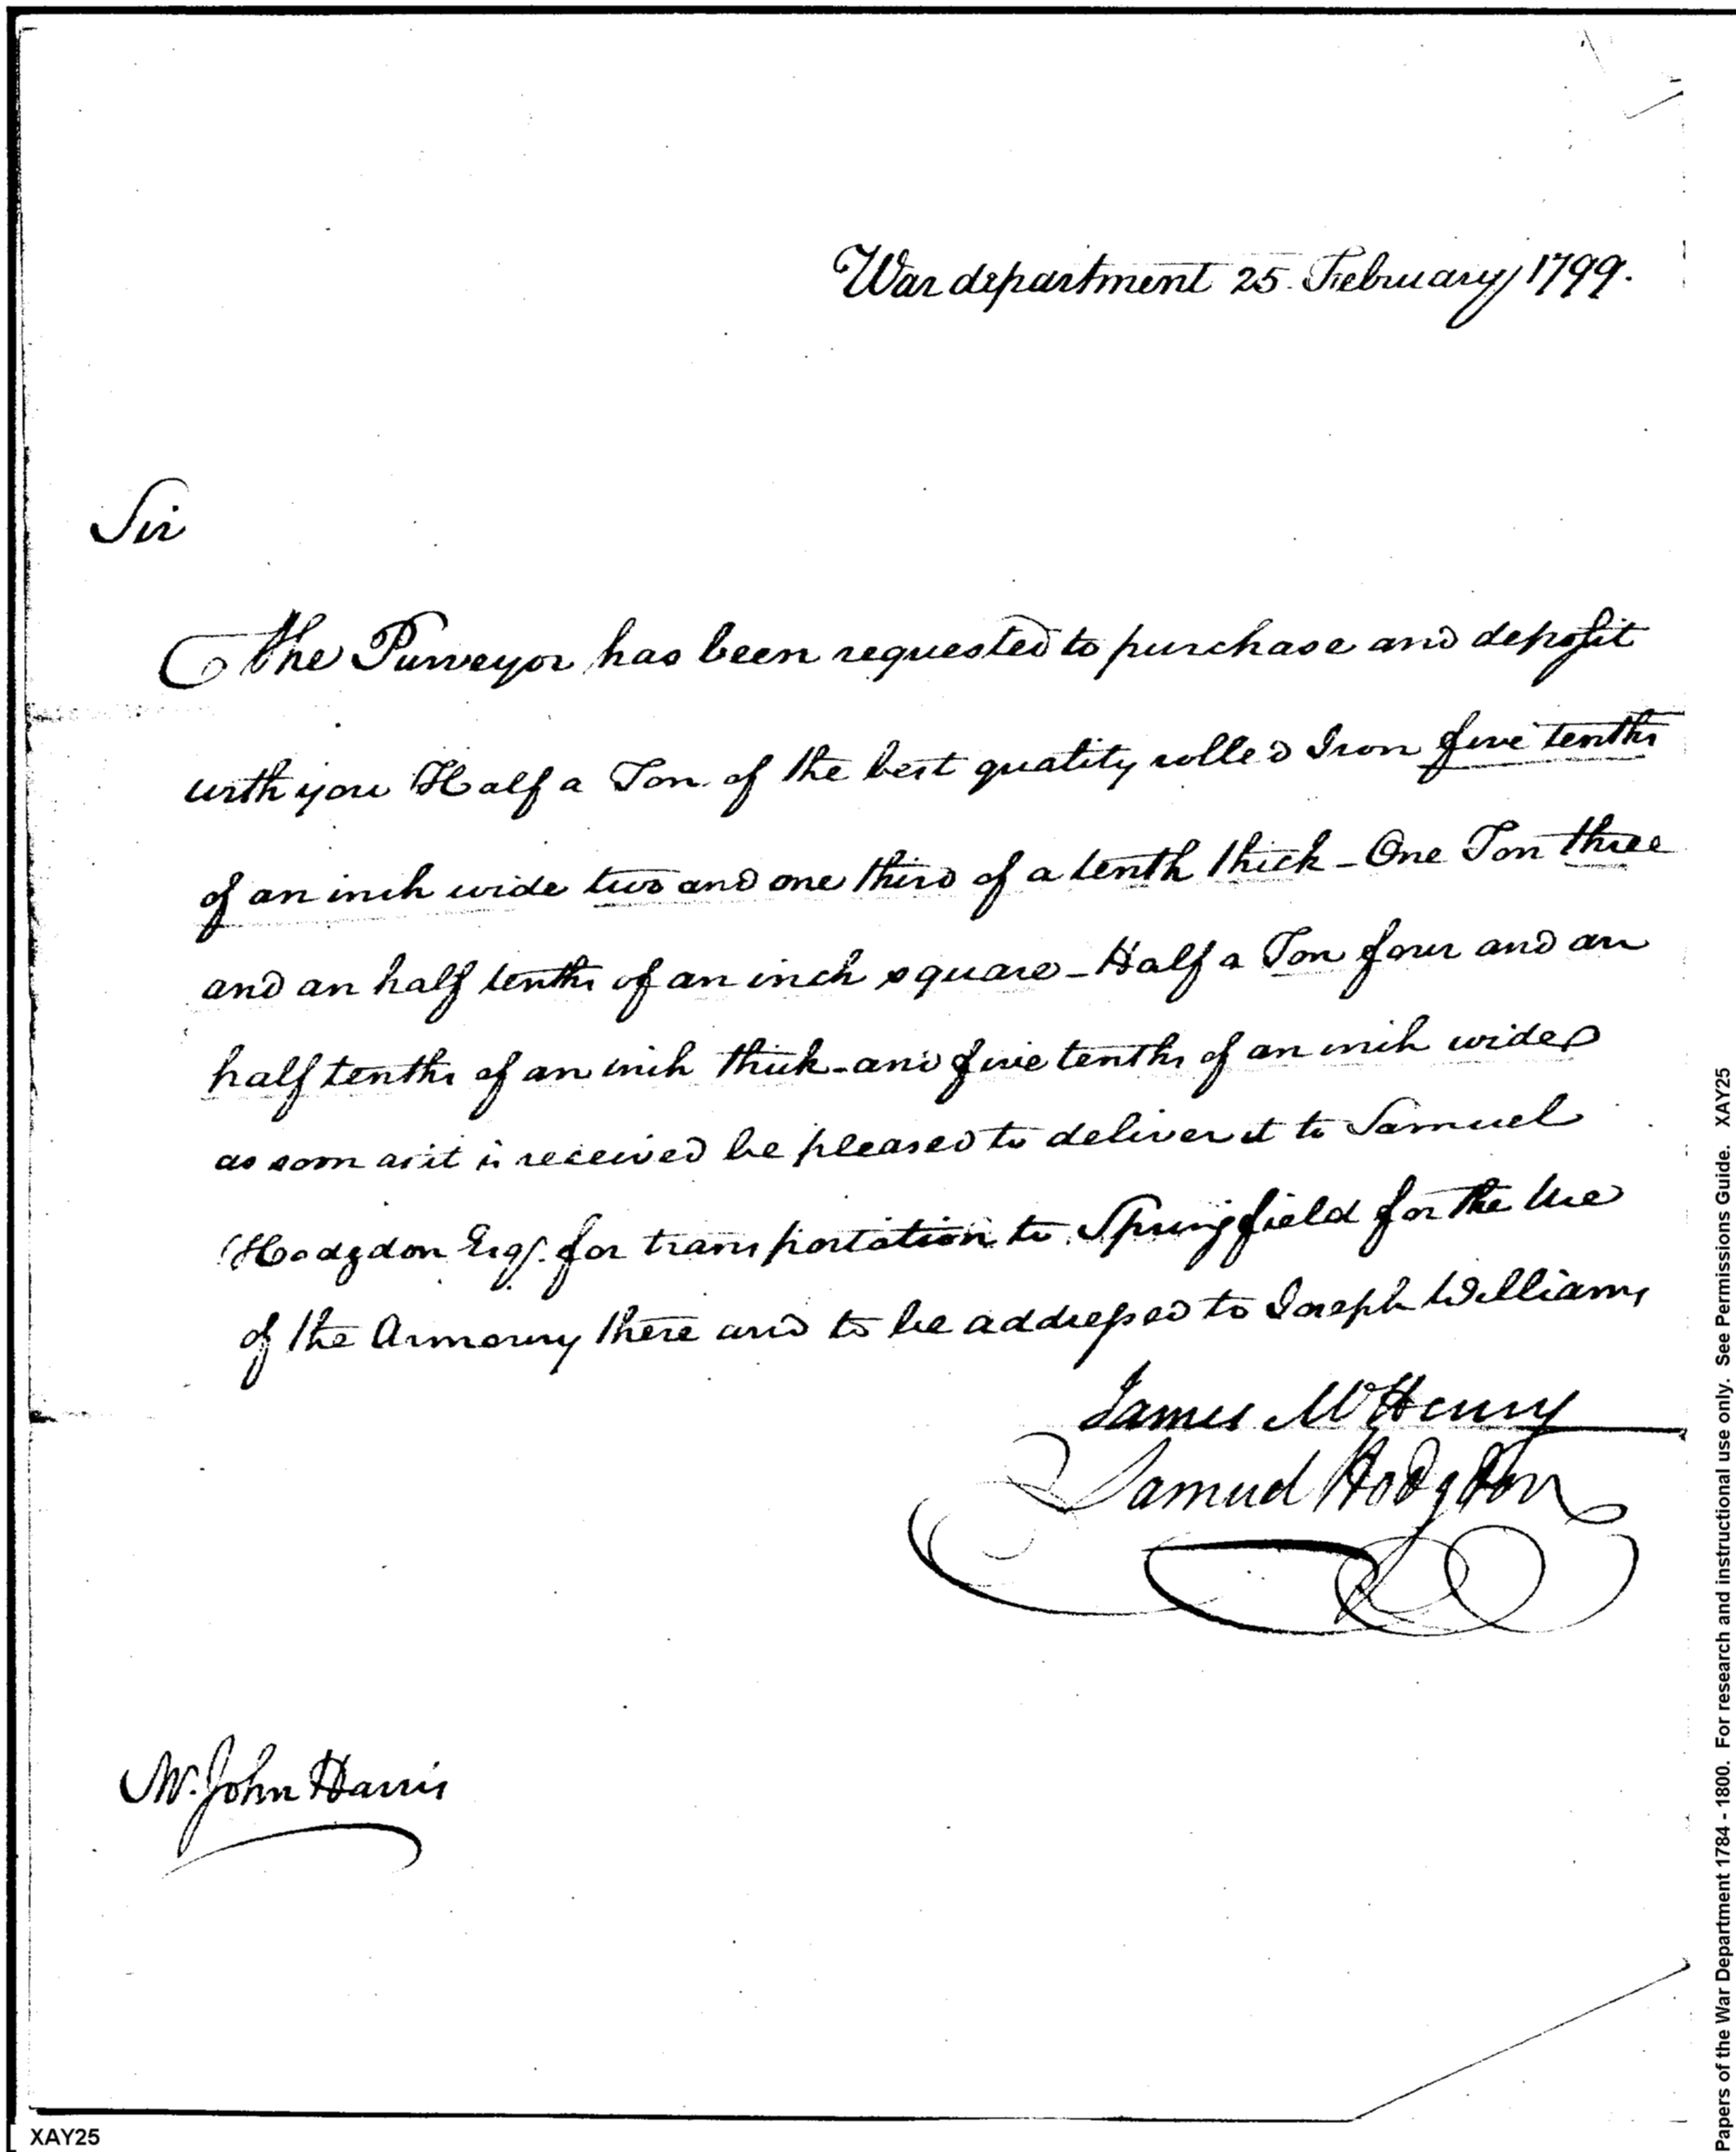 War department 25. February 1799.
Sir
The Purveyor has been requested to purchase and deposit
with you Half a Ton of the best quality rolled Iron five tenths
of an inch wide two and one third of a tenth thick - One Ton three
and an half tenths of an inch square - Half a Ton four and an
half tenths of an inch thick - and five tenths of an inch wide
as soon as it is received be pleased to deliver it to Samuel
Hodgdon Esqr. for transportation to Springfield for the Use
of the Armoury there and to be addressed to Joseph Williams
James McHenry
Samuel Hodgdon
Mr. John Harris
XAY25
Papers of the War Department 1784 - 1800. For research and instructional use only. See Permissions Guide. XAY25